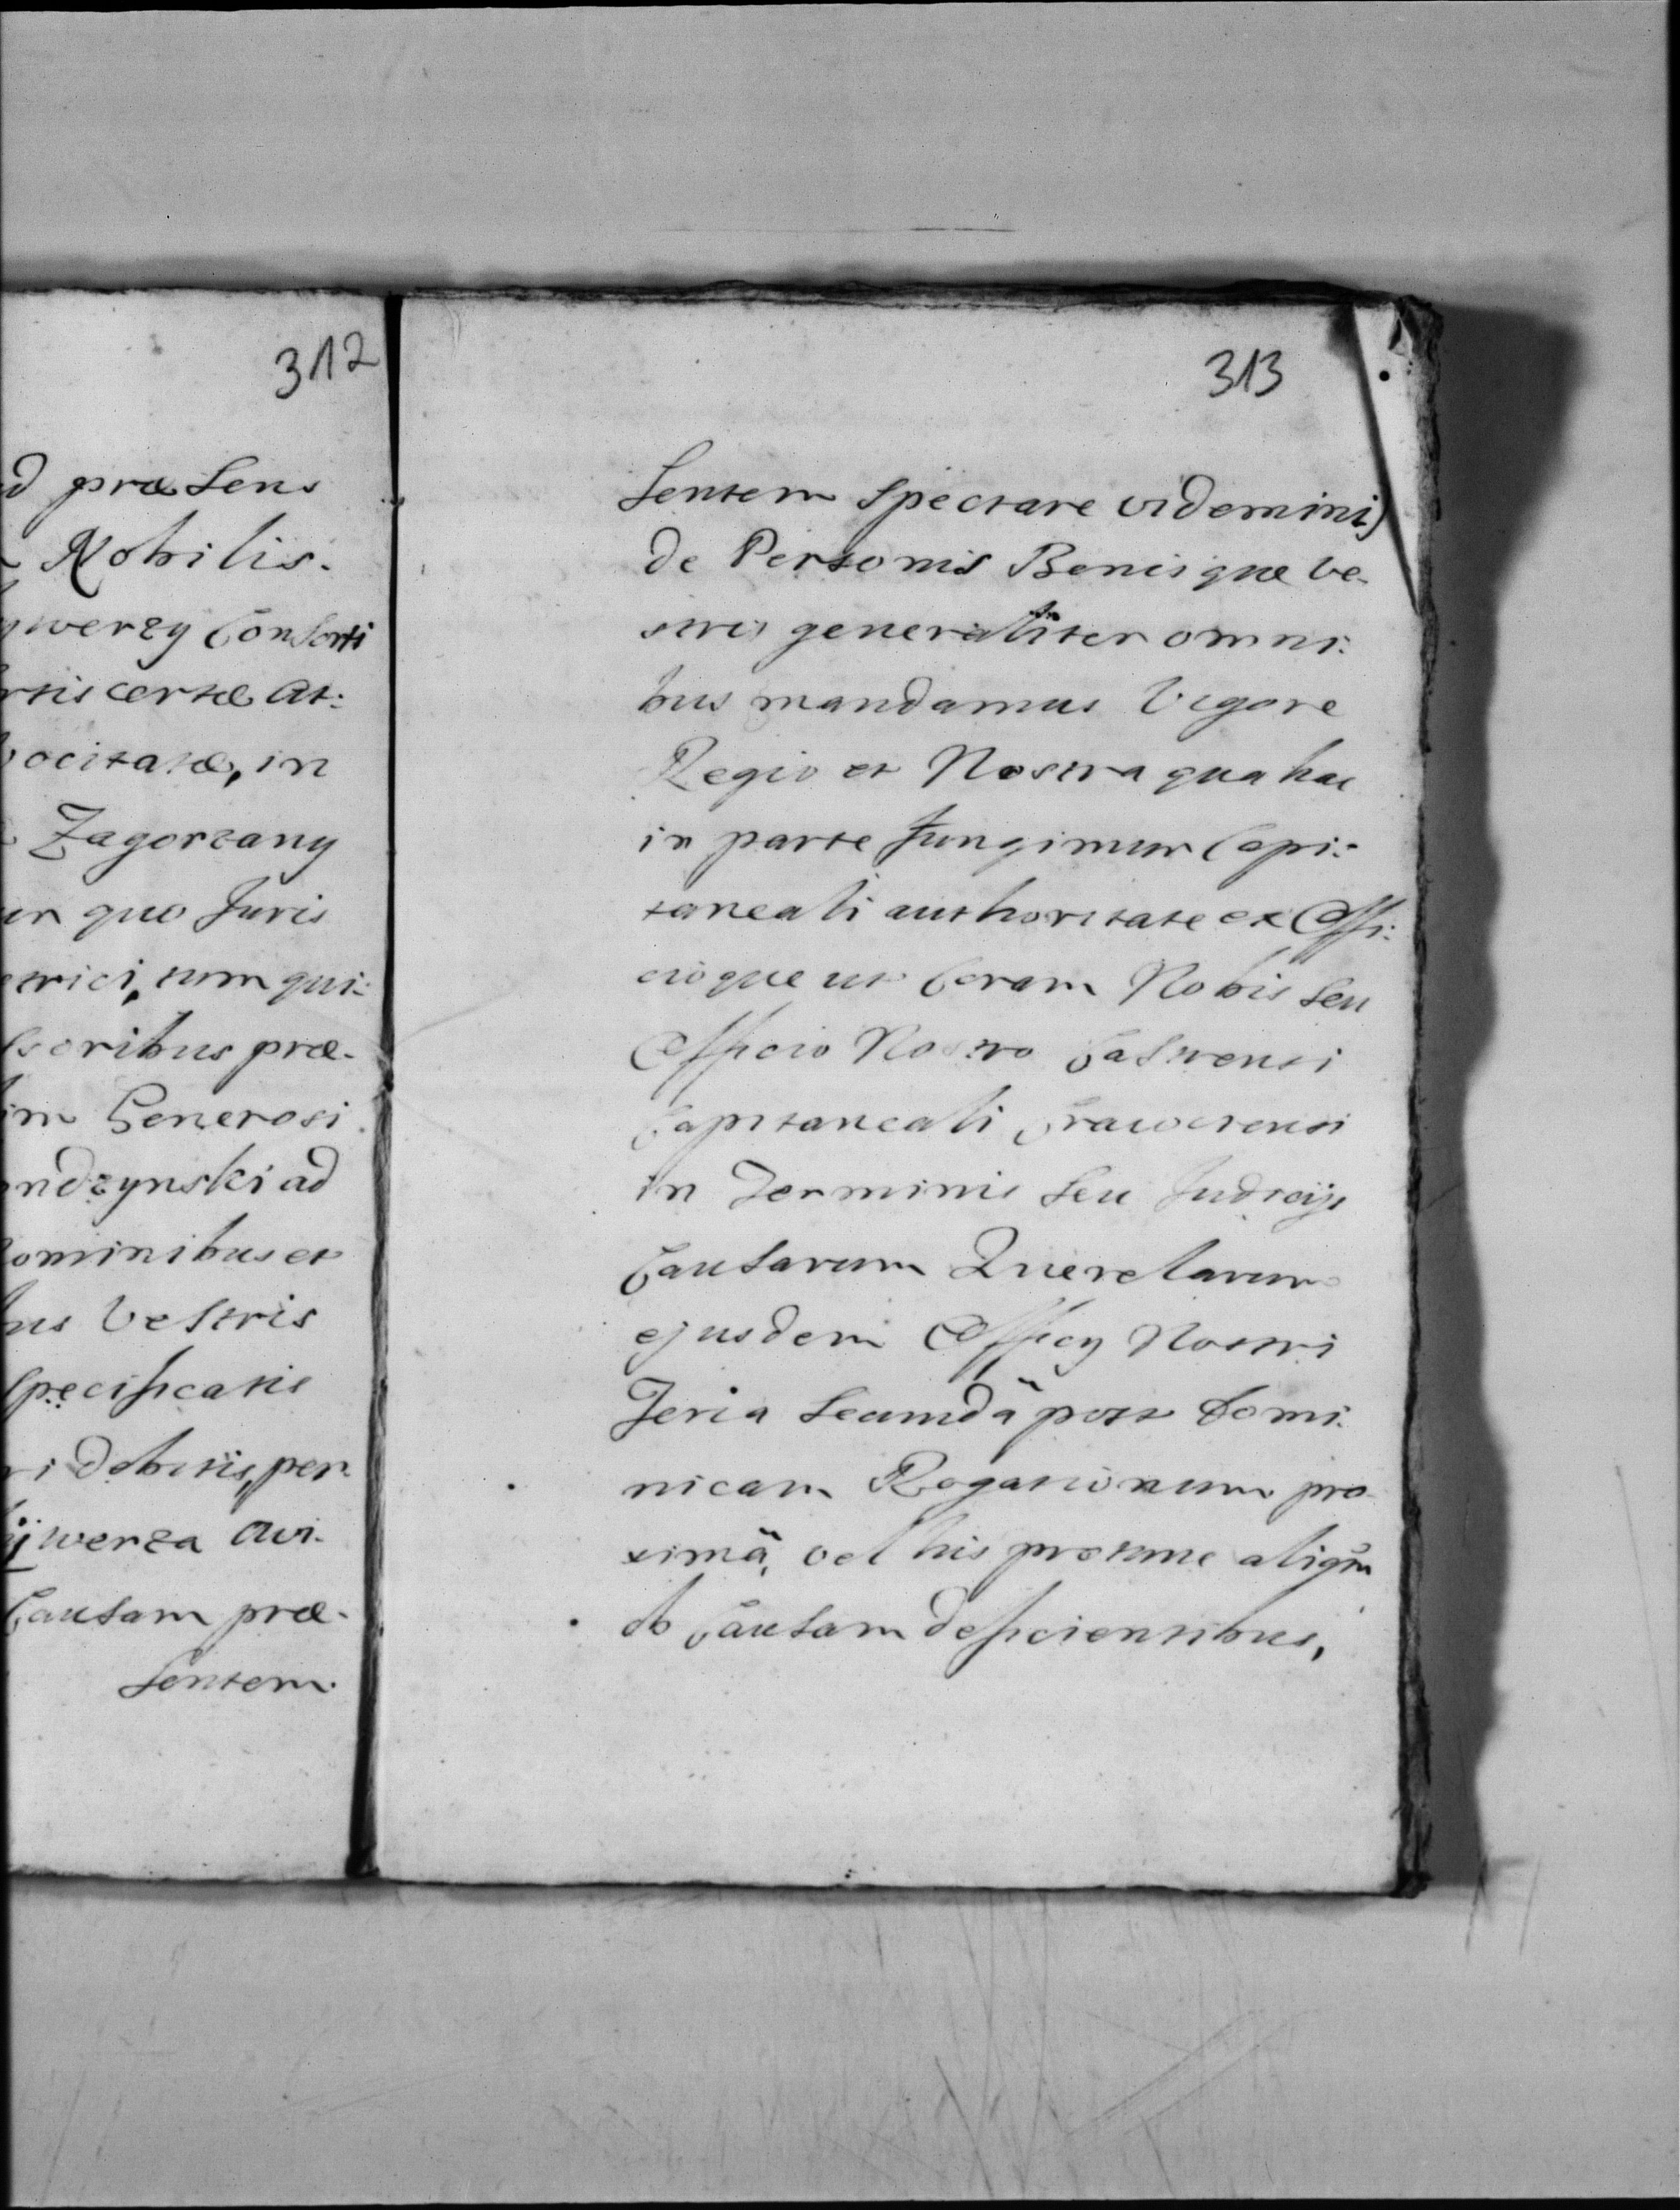 312
d præsens
Nobilis.
ywerzy Consorti
rtis certæ At:
ocitatæ, in
Zagorzany
ur quo Juris
trici, tum qui:
ssoribus præ-
im Generosi
ndzynski ad
ominibus et
us Vestris
specificatis
ri debitis, per
ÿwerza avi-
Causam præ-
sentem
313
sentem spectare videmini)
de Personis Benisque ve-
stris generaliter omni:
bus mandamus Vigore
Regio et Nostra qua hac
in parte fungimur Capi:
taneali authoritate ex Offi:
cioque ut Coram Nobis seu
Officio Nostro Castrensi
Capitaneali Cracoviensi
in Terminis seu Judicijs
Causarum Querelarum
ejusdem Officij Nostri
Feria Secundâ post Domi-
nicam Rogationum pro-
ximâ, vel his proxime aliqm̃
ob Causam deficientibus,